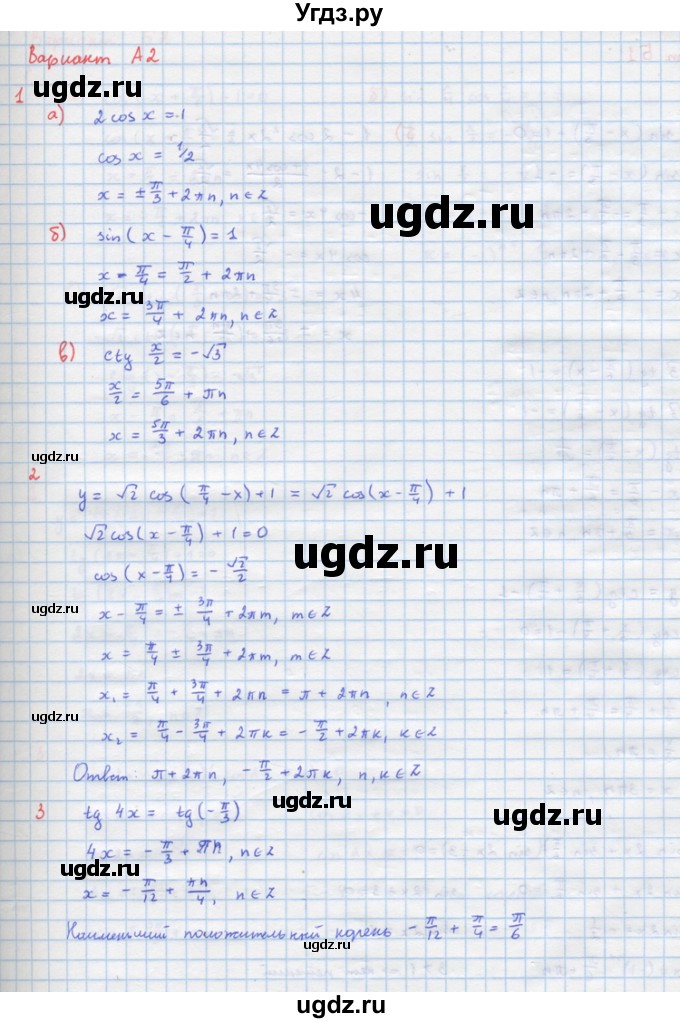 Угдз.ру
Вариант А2
ugdz.ru
1
а) 2 cos x = 1
cos x = 1/2
x = ± π/3 + 2πn, n ∈ Z
ugdz.ru
б) sin(x - π/4) = 1
x - π/4 = π/2 + 2πn
ugdz.ru
x = 3π/4 + 2πn, n ∈ Z
в) ctg x/2 = -√3
x/2 = 5π/6 + πn
ugdz.ru
x = 5π/3 + 2πn, n ∈ Z
2
y = √2 cos(π/4 - x) + 1 = √2 cos(x - π/4) + 1
√2 cos(x - π/4) + 1 = 0
ugdz.ru
cos(x - π/4) = - √2/2
ugdz.ru
x - π/4 = ± 3π/4 + 2πm, m ∈ Z
x = π/4 ± 3π/4 + 2πm, m ∈ Z
x₁ = π/4 + 3π/4 + 2πn = π + 2πn, n ∈ Z
ugdz.ru
x₂ = π/4 - 3π/4 + 2πk = - π/2 + 2πk, k ∈ Z
Ответ: π + 2πn, - π/2 + 2πk, n, k ∈ Z
ugdz.ru
3 tg 4x = tg(- π/3)
4x = - π/3 + πn, n ∈ Z
ugdz.ru
x = - π/12 + πn/4, n ∈ Z
Наименьший положительный корень - π/12 + π/4 = π/6
ugdz.ru
ugdz.ru